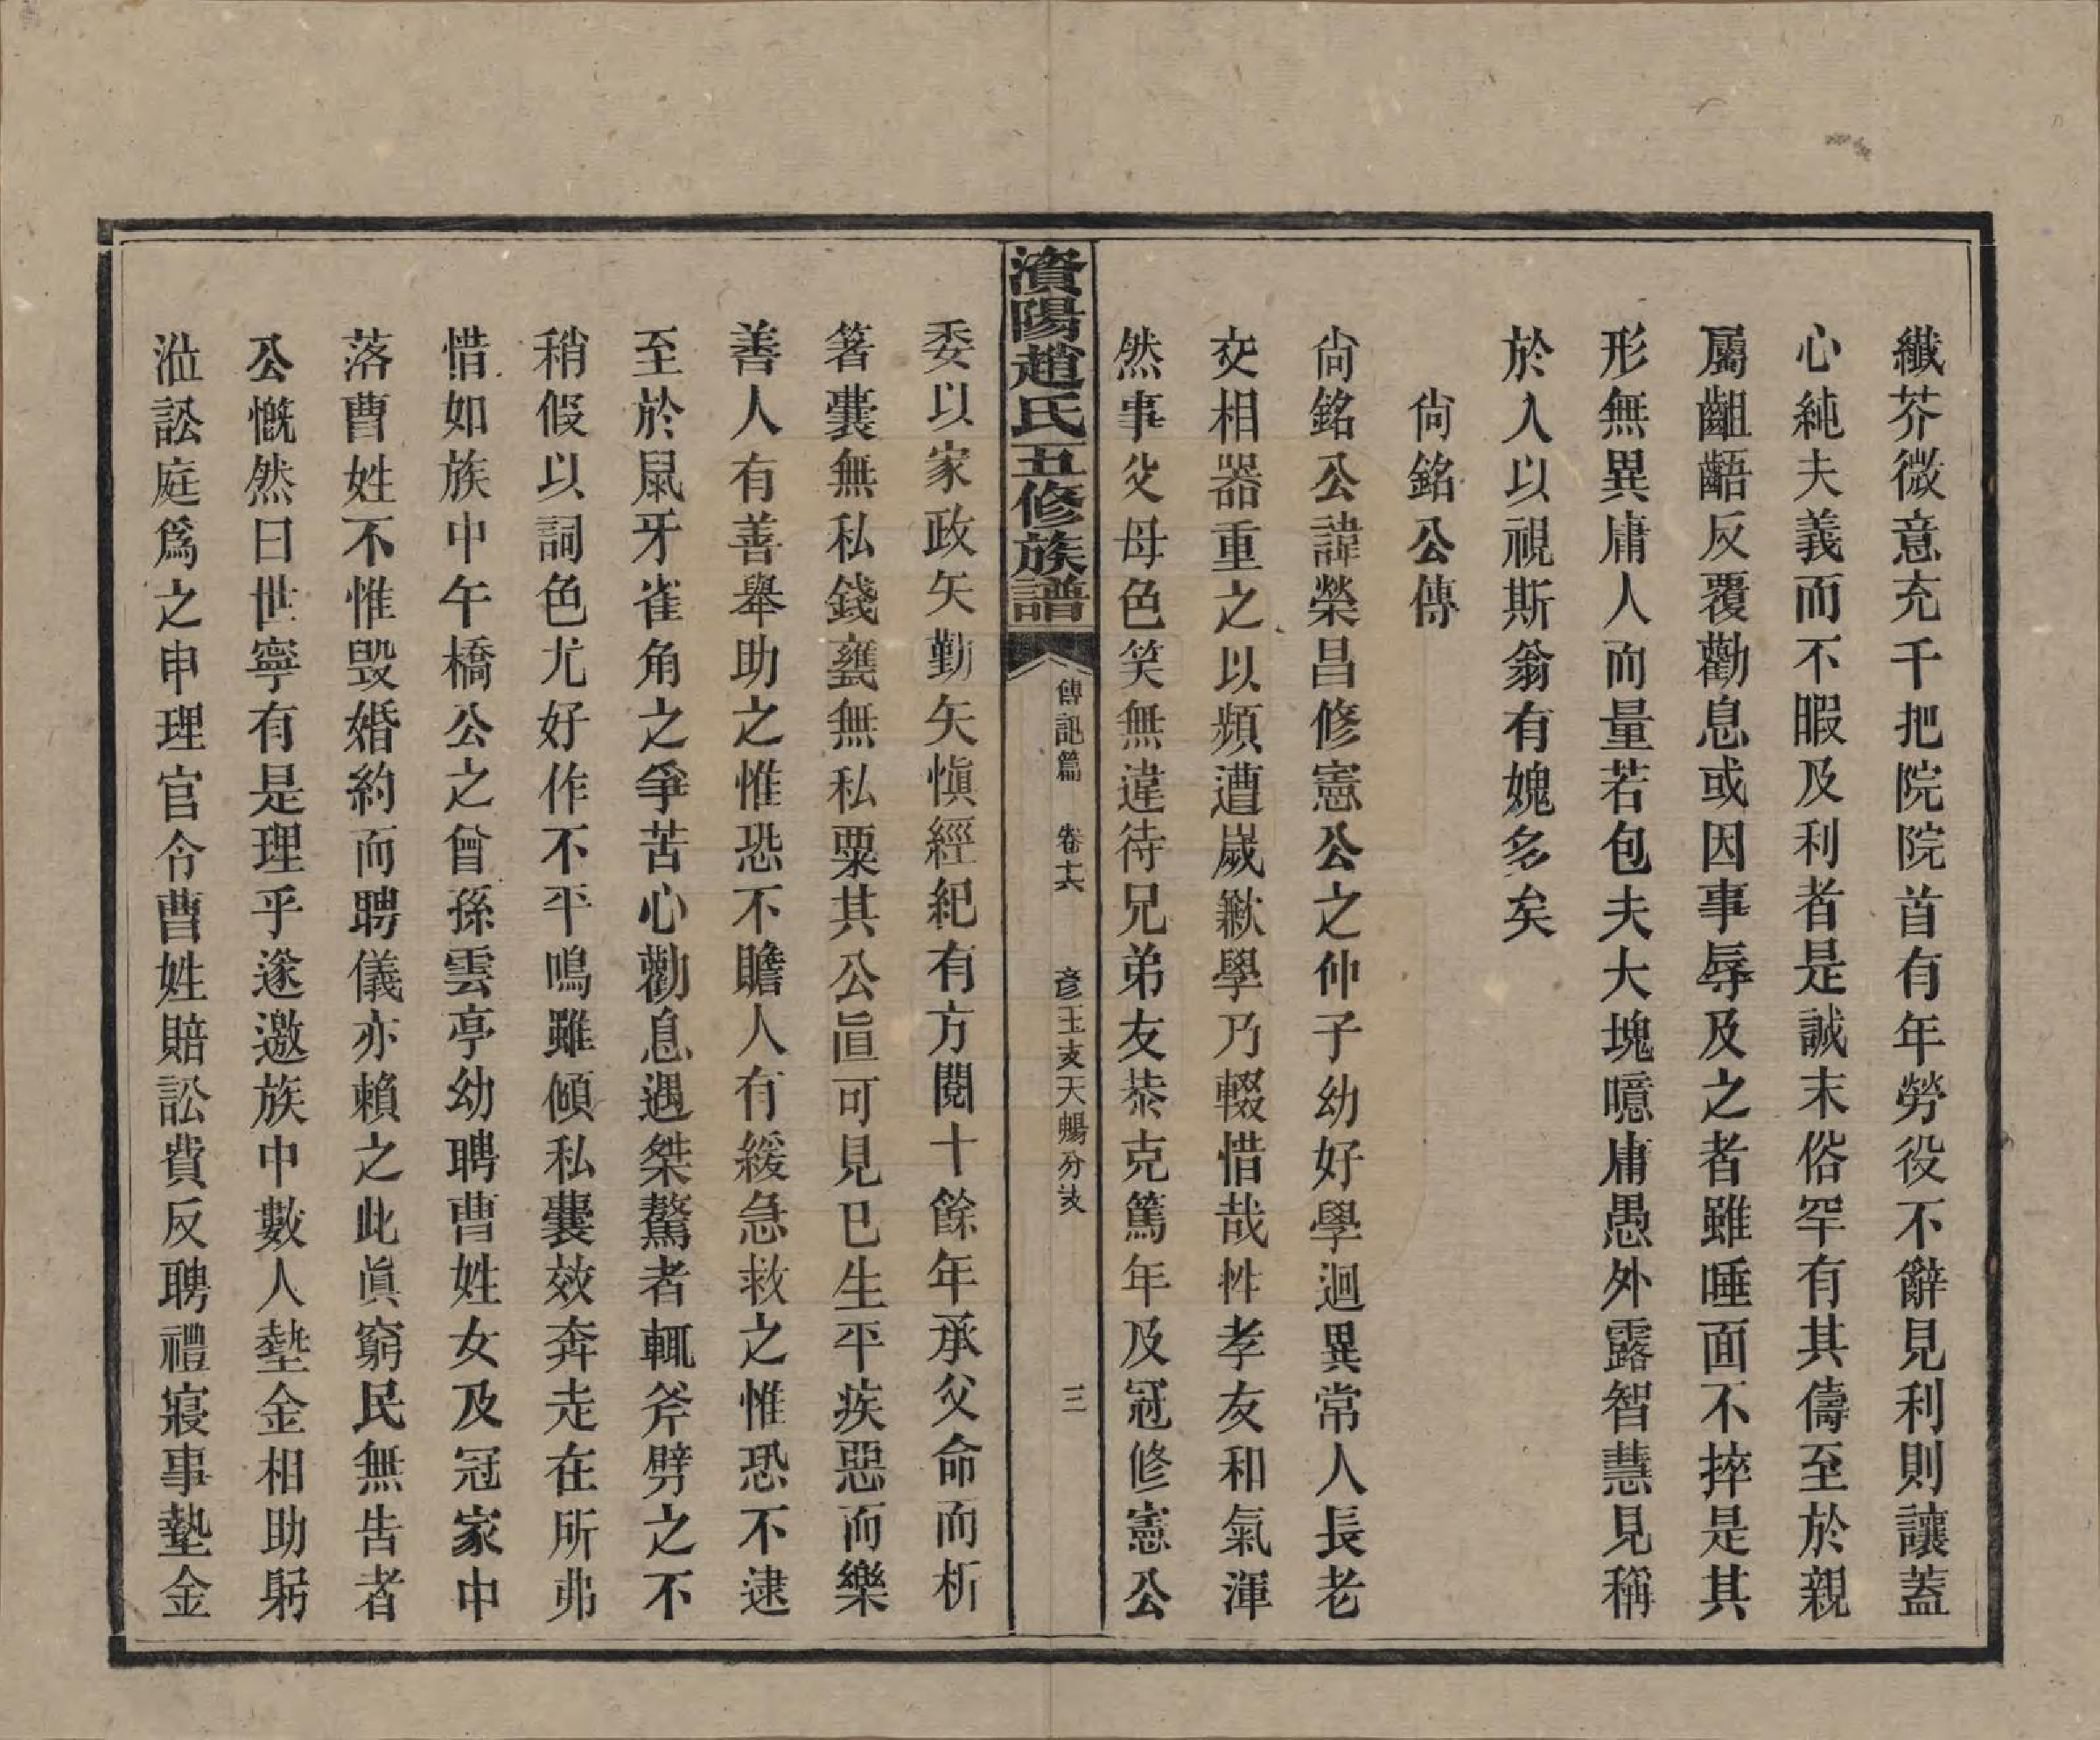 纖芥微意充千把院院首有年勞役不辭見利則讓蓋
心純夫義而不暇及利者是誠末俗罕有其儔至於親
屬齟齬反覆勸息或因事辱及之者雖唾面不捽是其
形無異庸人而量若包夫大塊噫庸愚外露智慧見稱
於人以視斯翁有媿多矣
尙銘公傳
尙銘公諱榮昌修憲公之仲子幼好學迴異常人長老
交相器重之以頻遭嵗歉學乃輟惜哉性孝友和氣渾
然事父母色笑無違待兄弟友恭克篤年及冠修憲公
濱陽趙氏五修族譜
傳記篇
卷十六
彥玉支天暘分支
三
委以家政矢勤矢愼經紀有方閱十餘年承父命而析
箸囊無私錢甕無私粟其公眞可見已生平疾惡而樂
善人有善舉助之惟恐不贍人有緩急救之惟恐不逮
至於鼠牙雀角之爭苦心勸息遇桀驁者輒斧劈之不
稍假以詞色尤好作不平鳴雖傾私囊效奔走在所弗
惜如族中午橋公之曾孫雲亭幼聘曹姓女及冠家中
落曹姓不惟毀婚約而聘儀亦賴之此眞窮民無告者
公慨然曰世寧有是理乎遂邀族中數人墊金相助躬
涖訟庭爲之申理官令曹姓賠訟費反聘禮寢事墊金